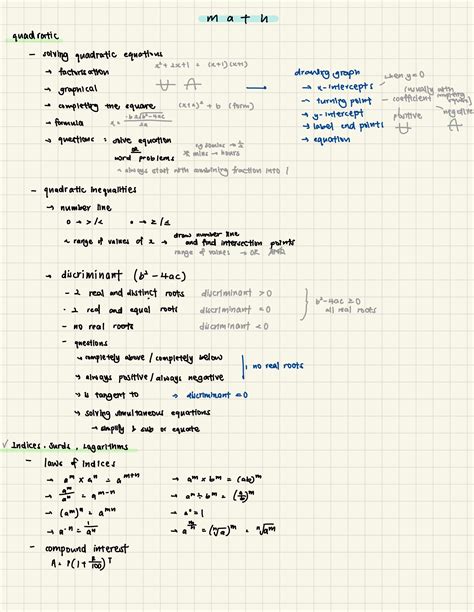 math
quadratic
- solving quadratic equations
→ factorisation x² + 2x+1 = (x+1)(x+1)
→ graphical
→ completing the square (x+a)² + b (form)
→ formula x = -b±√b²-4ac / 2a
→ questions: solve equation
OR
word problems
mins → hours
~ always start with combining fraction into 1
drawing graph
→ x-intercepts when y=0
→ turning point (usually with completing square)
→ y-intercept
coefficient
positive negative
→ label end points
→ equation
- quadratic inequalities
→ number line
o → >/< • → ≥/≤
~ range of values of x → draw number line and find intersection points
range of values → OR
→ discriminant (b²-4ac)
- 2 real and distinct roots discriminant > 0
- 2 real and equal roots discriminant = 0
- no real roots discriminant < 0
b²-4ac ≥ 0
all real roots
- questions
→ completely above / completely below
→ always positive / always negative
no real roots
→ is tangent to → discriminant = 0
→ solving simultaneous equations
→ simplify & sub or equate
✓ Indices, Surds, Logarithms
- laws of indices
→ aᵐ × aⁿ = aᵐ⁺ⁿ → aᵐ × bᵐ = (ab)ᵐ
→ aᵐ/aⁿ = aᵐ⁻ⁿ → aᵐ ÷ bᵐ = (a/b)ᵐ
→ (aᵐ)ⁿ = aᵐⁿ → a⁰ = 1
→ a⁻ⁿ = 1/aⁿ → a^(m/n) = (ⁿ√a)ᵐ = ⁿ√aᵐ
- compound interest
A = P(1 + R/100)ᵀ